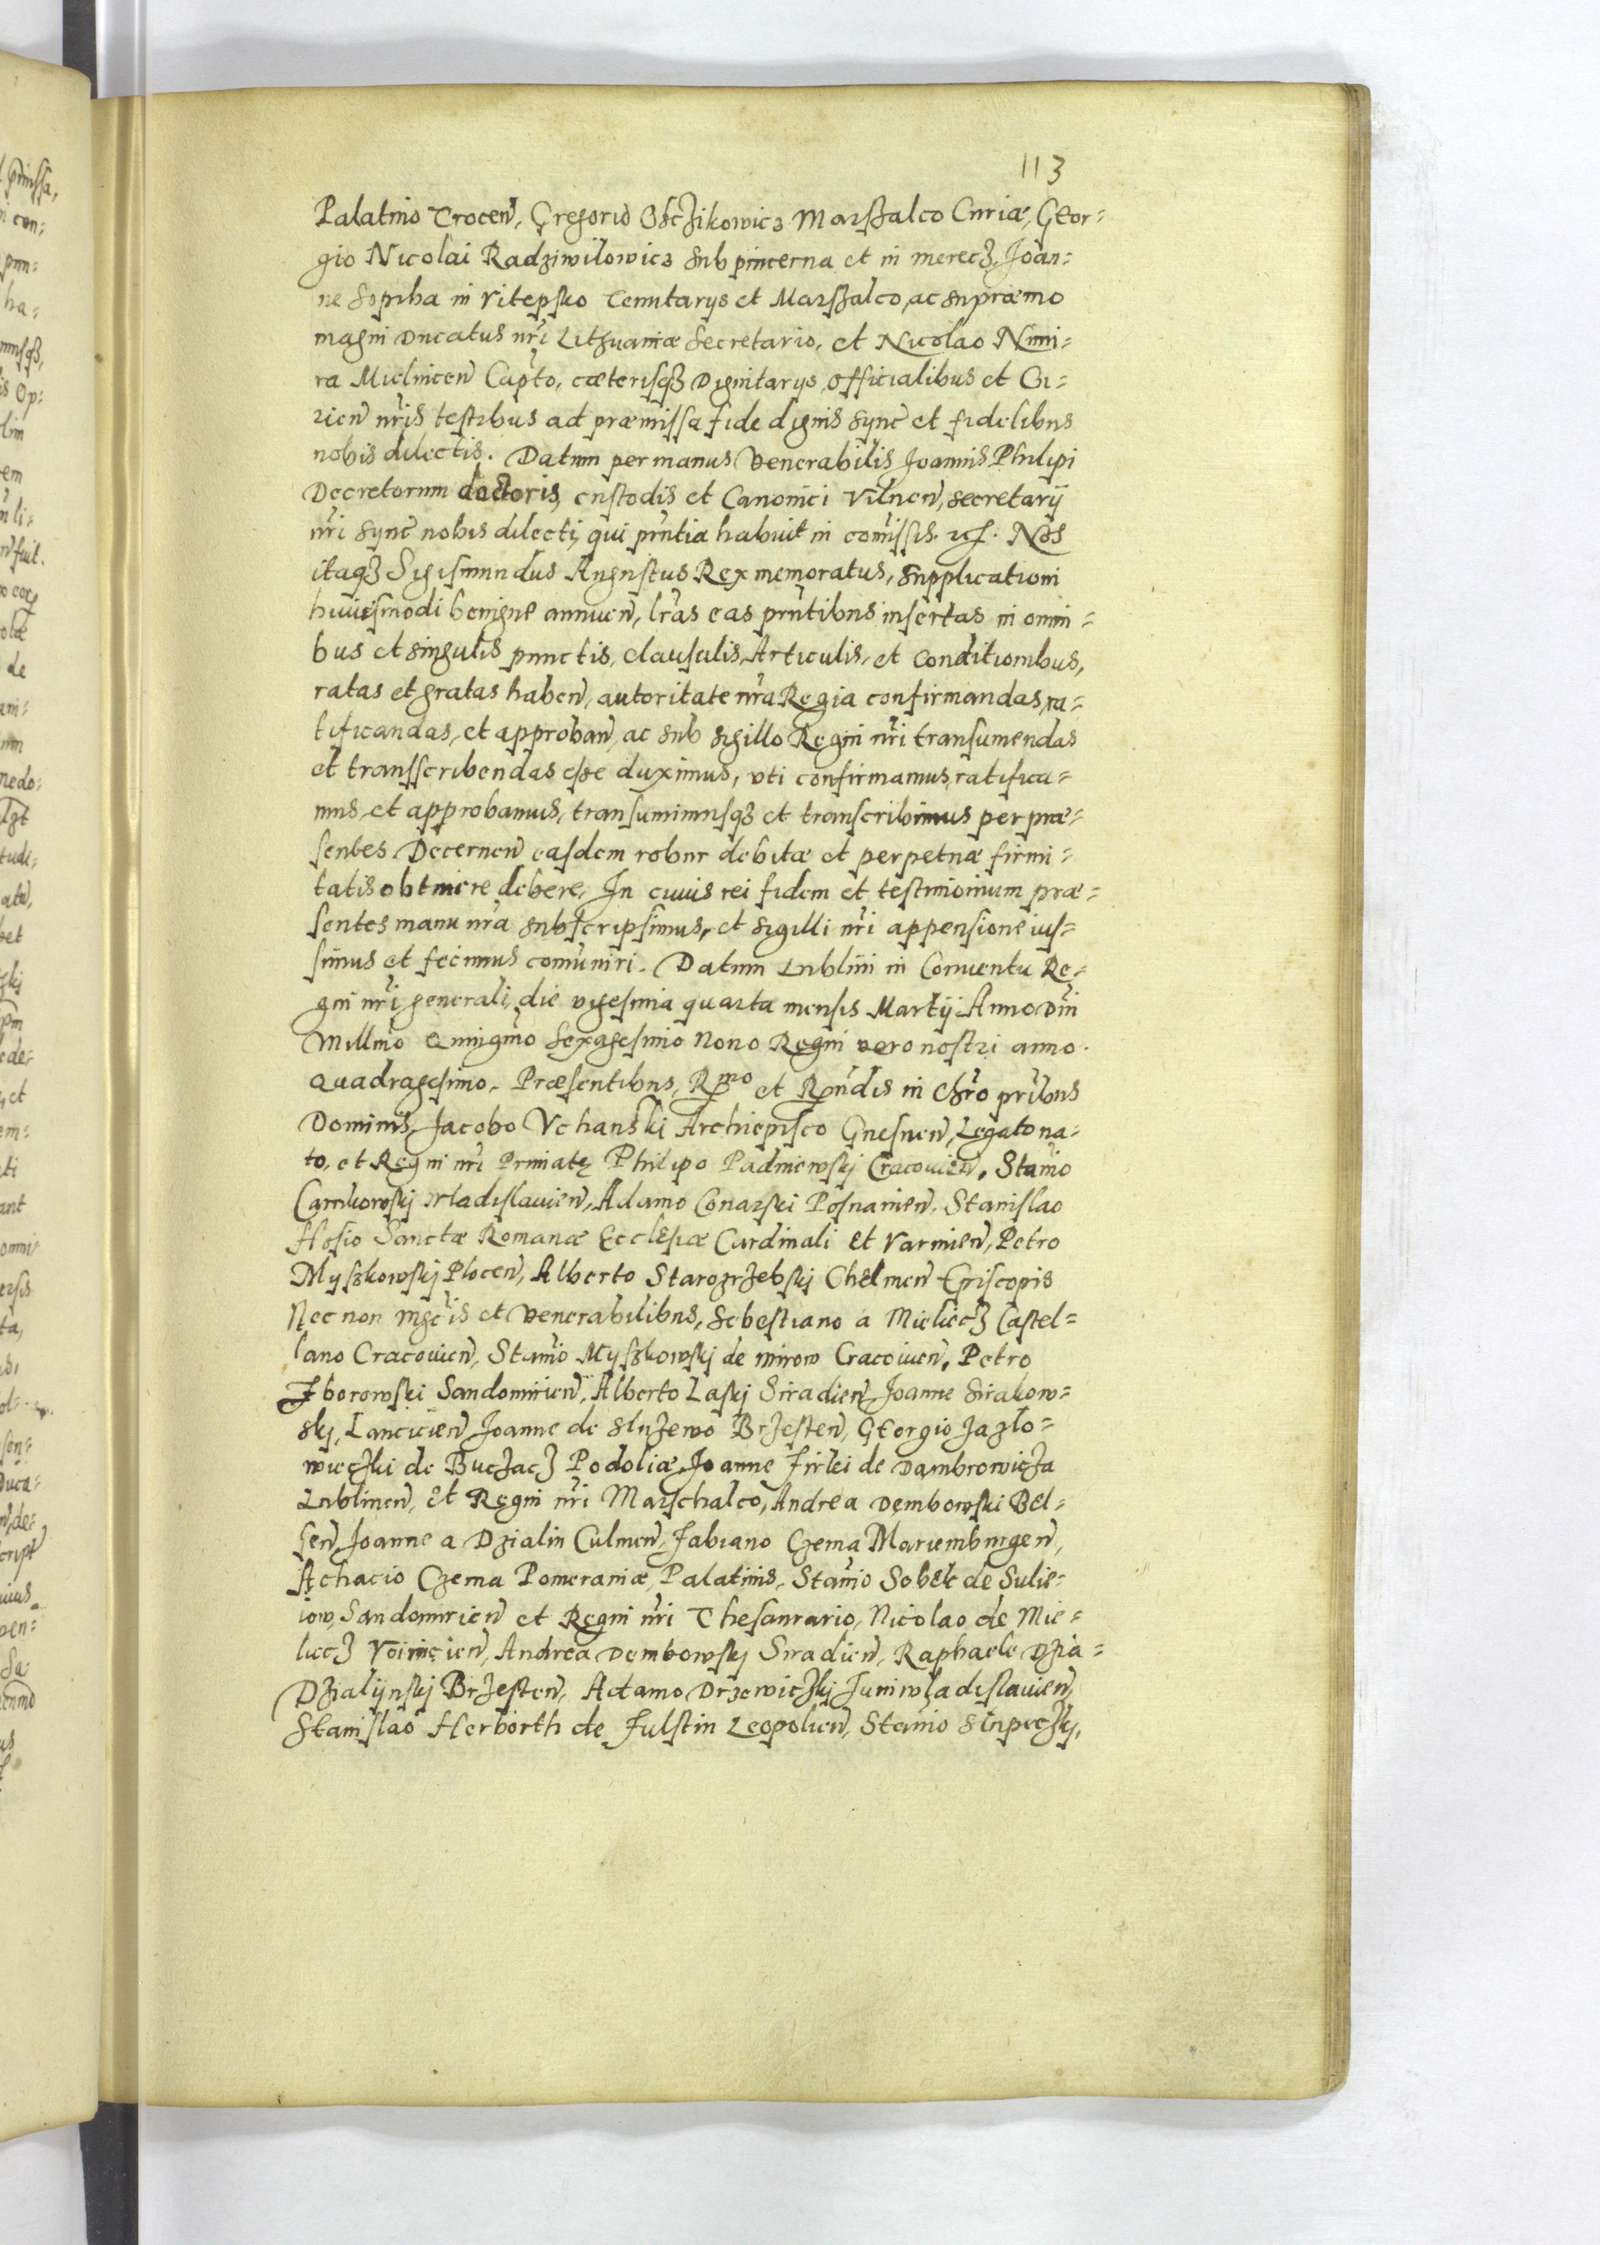 113
Palatino Trocen, Gregorio Osczikowicz Marszalco Curiæ, Geor=
gio Nicolai Radziwilowicz subpincerna et in merecz, Joan=
ne Sopiha in Vitepsko Tenutarys et Marszalco, ac supræmo
magni Ducatus nri Lithuaniæ Secretario, et Nicolao Nimi=
ra Mielnicen Capto, cæterisqz Dignitarys officialibus et Cu=
rien nris testibus ad præmissa fide dignis sync et fidelibus
nobis dilectis. Datum per manus Venerabilis Joannis Philipi
Decretorum doctoris, custodis et Canonici Vilnen, secretarij
nri sync nobis dilecti, qui pntia habuit in comissis. Nos
itaqz Sigismundus Augustus Rex memoratus, supplicationi
huiusmodi benigne annuen, lras eas pntibus insertas in omni=
bus et singulis punctis, clausulis, Articulis, et Conditionibus,
ratas et gratas haben, autoritate nra Regia confirmandas, ra=
tificandas, et approban, ac sub sigillo Regni nri transumendas
et transscribendas esse duximus, vti confirmamus, ratifica=
mus, et approbamus, transumimusqz et transcribimus per præ=
sentes. Decernen easdem robur debitæ et perpetuæ firmi=
tatis obtinere debere, In cuius rei fidem et testimonium præ=
sentes manu nra subscripsimus, et sigilli nri appensione ius=
simus et fecimus comuniri. Datum Lublini in Conuentu Re=
gni nri generali, die vigesima quarta mensis Martij Anno Dni
Millmo Quingmo Sexagesimo Nono Regni vero nostri anno
Quadragesimo. Præsentibus, Rmo et Rndis in Chro pribus
Dominis, Jacobo Vchanski Archiepisco Gnesnen, Legato na=
to, et Regni nri Primatę Philipo Padniewskj Cracouien, Stanio
Carnkowskj Wladislauien, Adamo Conarski Posnanien, Stanislao
Hosio Sanctæ Romanæ Ecclesiæ Cardinali et Varmien, Petro
Myszkowskj Plocen, Alberto Starozrzebskj Chelmen Episcopis
Nec non mgcis et Venerabilibus, Sebestiano a Mielecz Castel=
lano Cracouien, Stanio Myszkowskj de mirow Cracouien, Petro
Zborowski Sandomirien, Alberto Laskj Siradien Joanne Sirakow=
skj, Lancicien Joanne de Sluzewo Brzesten, Georgio Jazlo=
wieczki de Buczacz Podoliæ, Joanne Firlei de Dambrowicza
Lublinen, et Regni nri Marschalco, Andrea Dembowski Bel=
sen Joanne a Dzialin Culmen, Fabiano Czema Mariemburgen,
Achacio Czema Pomeraniæ, Palatinis, Stanio Sobek de Sulie=
iow, Sandomirien et Regni nri Thesaurario, Nicolao de Mie=
liecz Voinicien, Andrea Dembowskj Siradien, Raphaele Dzia=
Dzialijnskj Brzesten, Adamo Drzewiczkj Juniwladislauien,
Stanislao Herborth de Fulstin Leopolien, Stanio Slupeczkj,